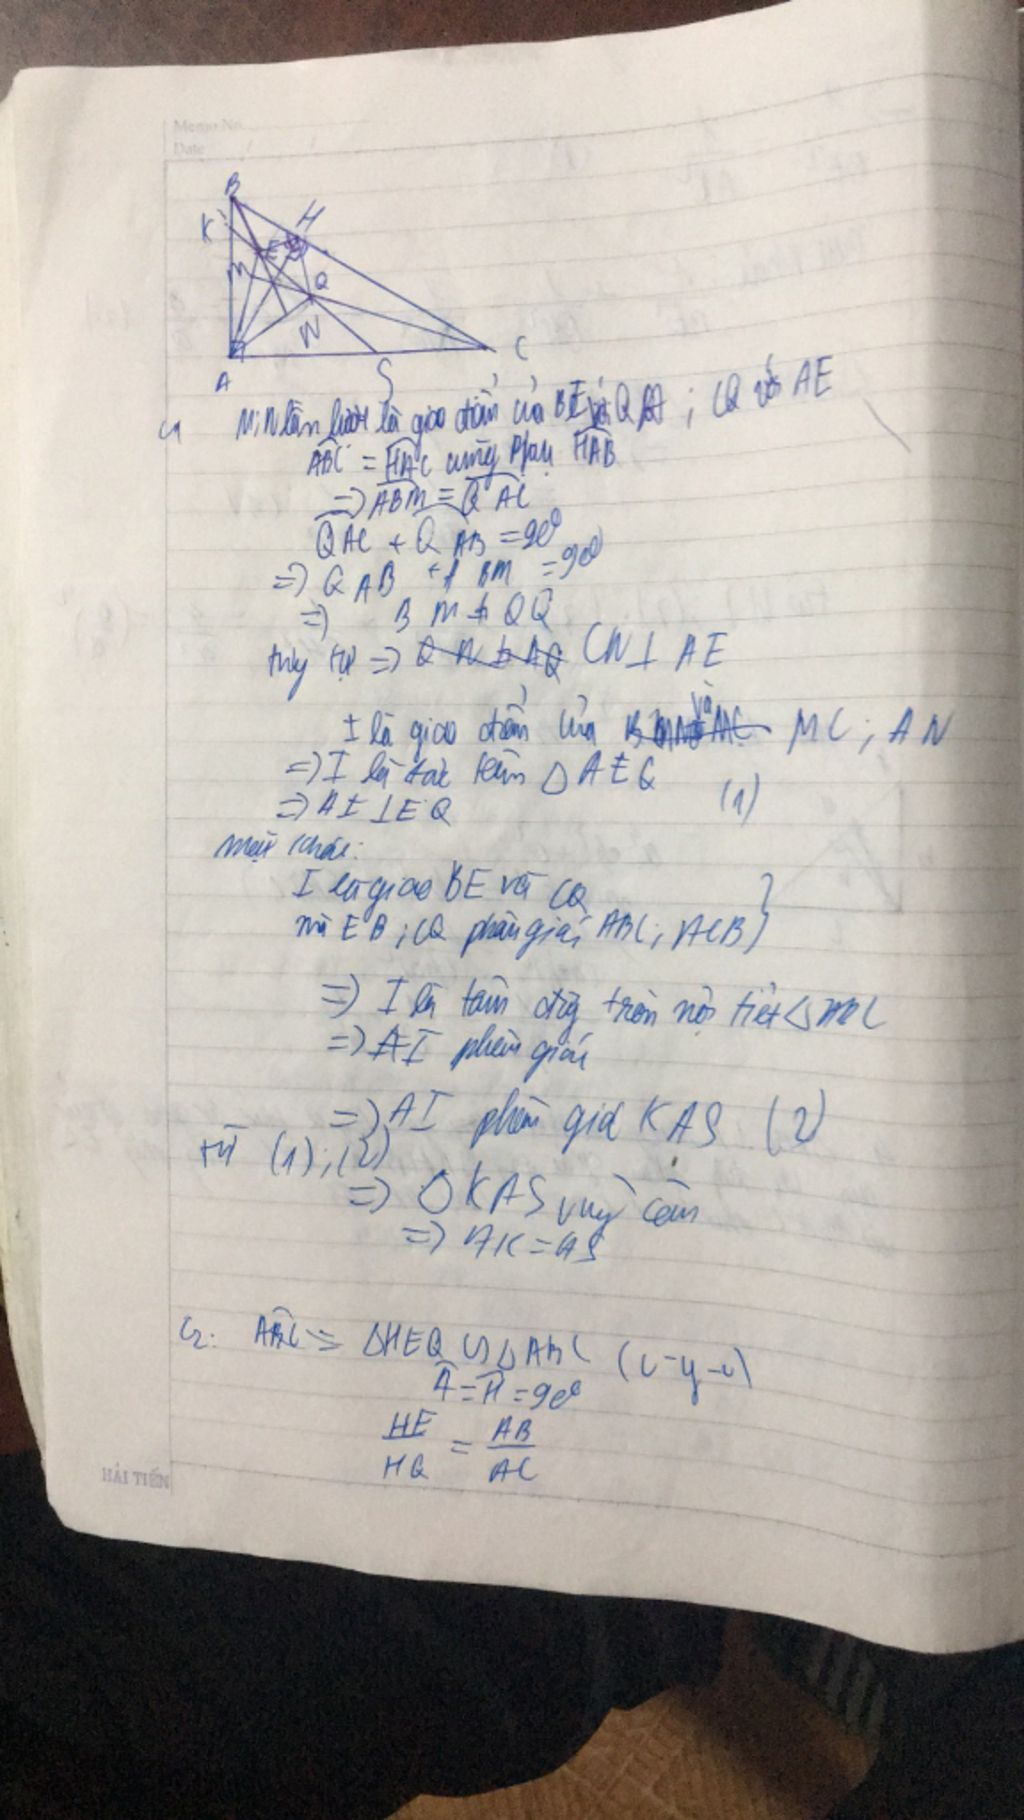 Memo No.
Date / /
B
K
H
E
M
Q
N
A
S
C
C1
M; N lần lượt là giao điểm của BE với QA ; CQ với AE
ABC = HAC cùng phụ HAB
=> ABM = QAC
QAC + QAB = 90°
=> QAB + ABM = 90°
=> BM ⊥ QQ
tương tự => CN ⊥ AE
I là giao điểm của MC ; AN
=> I là trực tâm △ AEQ
=> AI ⊥ EQ (1)
Mặt khác:
I là giao BE và CQ
mà EB ; CQ phân giác ABC ; ACB
=> I là tâm đường tròn nội tiếp △ ABC
=> AI phân giác
=> AI phân giác KAS (2)
từ (1) ; (2)
=> △ KAS vuông cân
=> AK = AS
C2: ABC => △HEQ ∽ △ABC (c-g-c)
A = H = 90°
HE/HQ = AB/AC
HẢI TIẾN